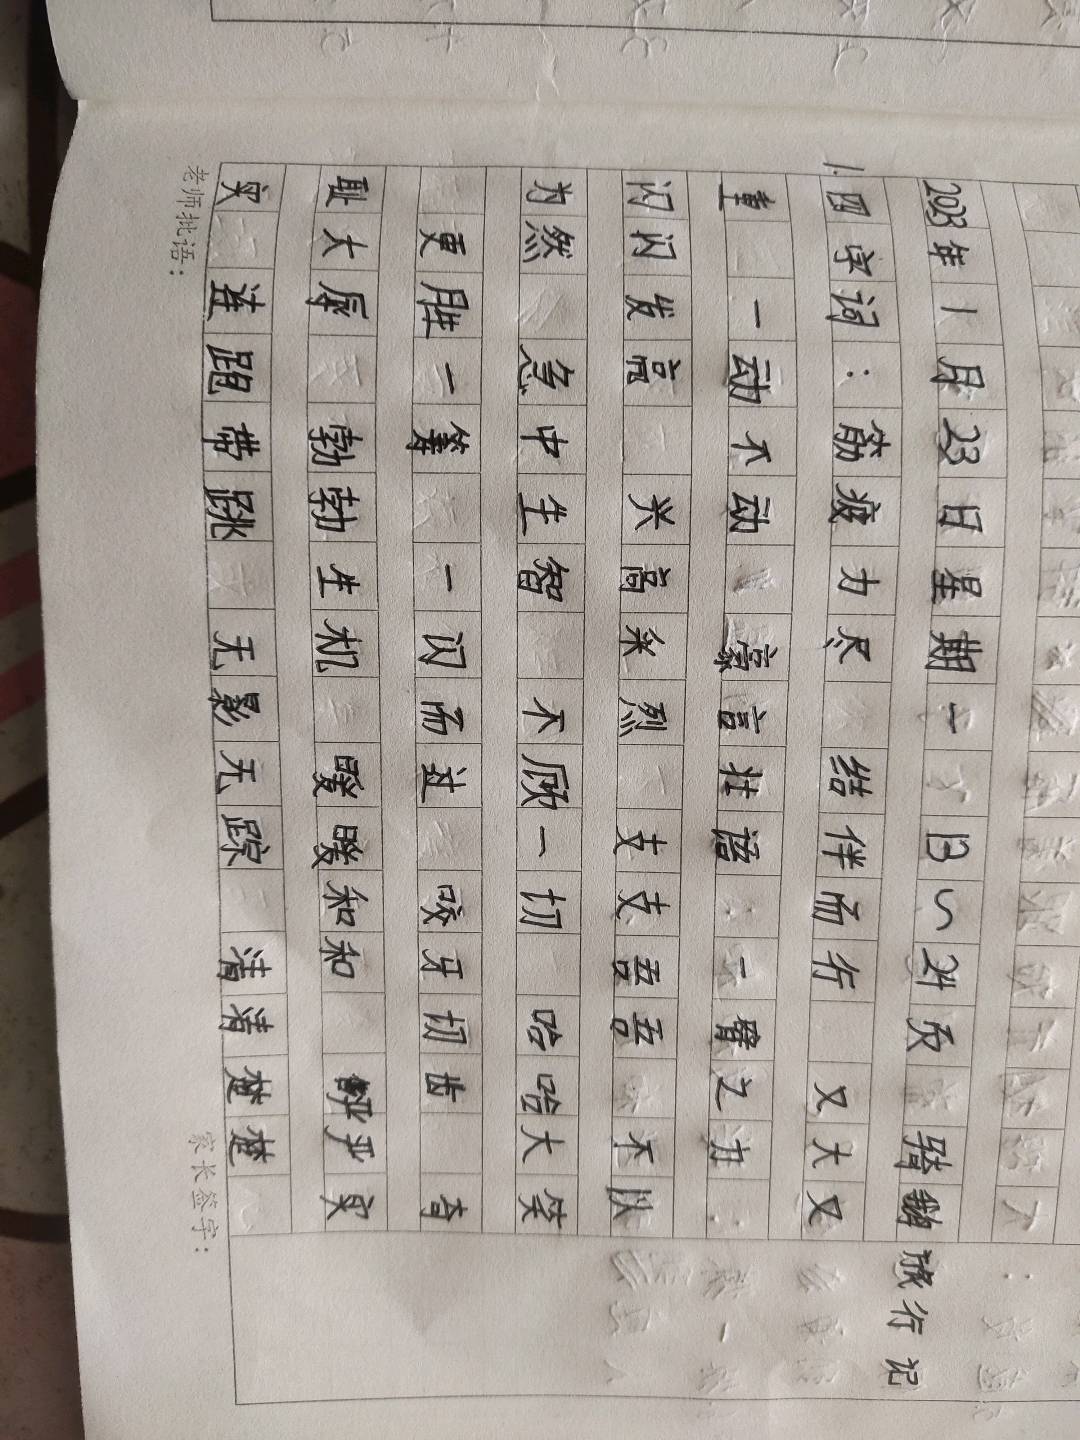 2023年1月23日星期一 13~24页 骑鹅旅行记
1.四字词:筋疲力尽 结伴而行 又大又
重 一动不动 豪言壮语 一臂之力
闪闪发高 兴高采烈 支支吾吾 不以
为然 急中生智 不顾一切 哈哈大笑
更胜一筹 一闪而过 咬牙切齿 奇
耻大辱 勃勃生机 暖暖和和 严严实
实 连蹦带跳 无影无踪 清清楚楚
老师批语:
家长签字: